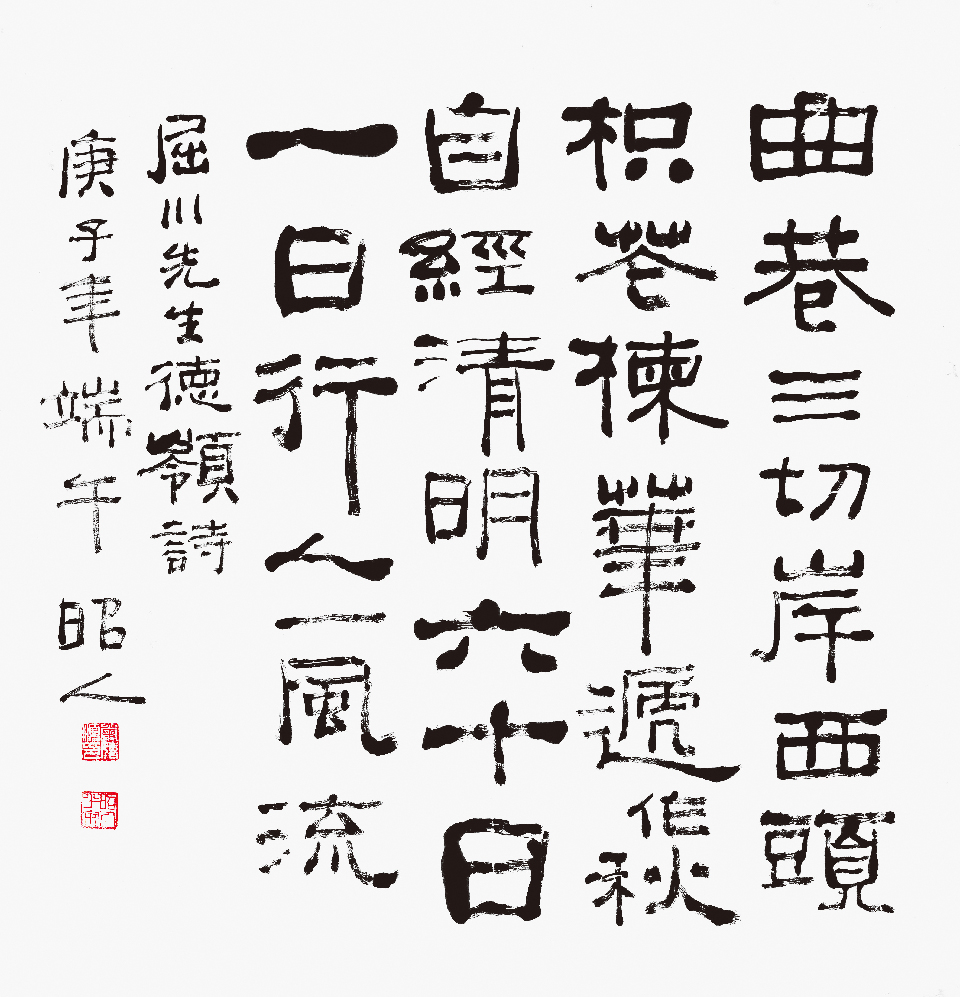 曲巷三切岸西頭
枳花楝華遞作秋
自經清明六十日
一日行人一風流
屈川先生德嶺詩
庚子年端午昭人